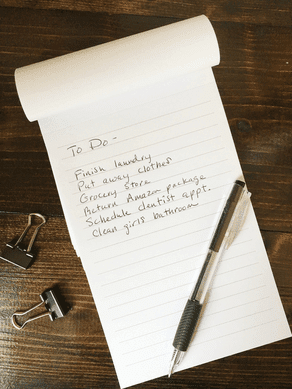 To Do -
Finish laundry
Put away clothes
Grocery store
Return Amazon package
Schedule dentist appt.
Clean girls bathroom